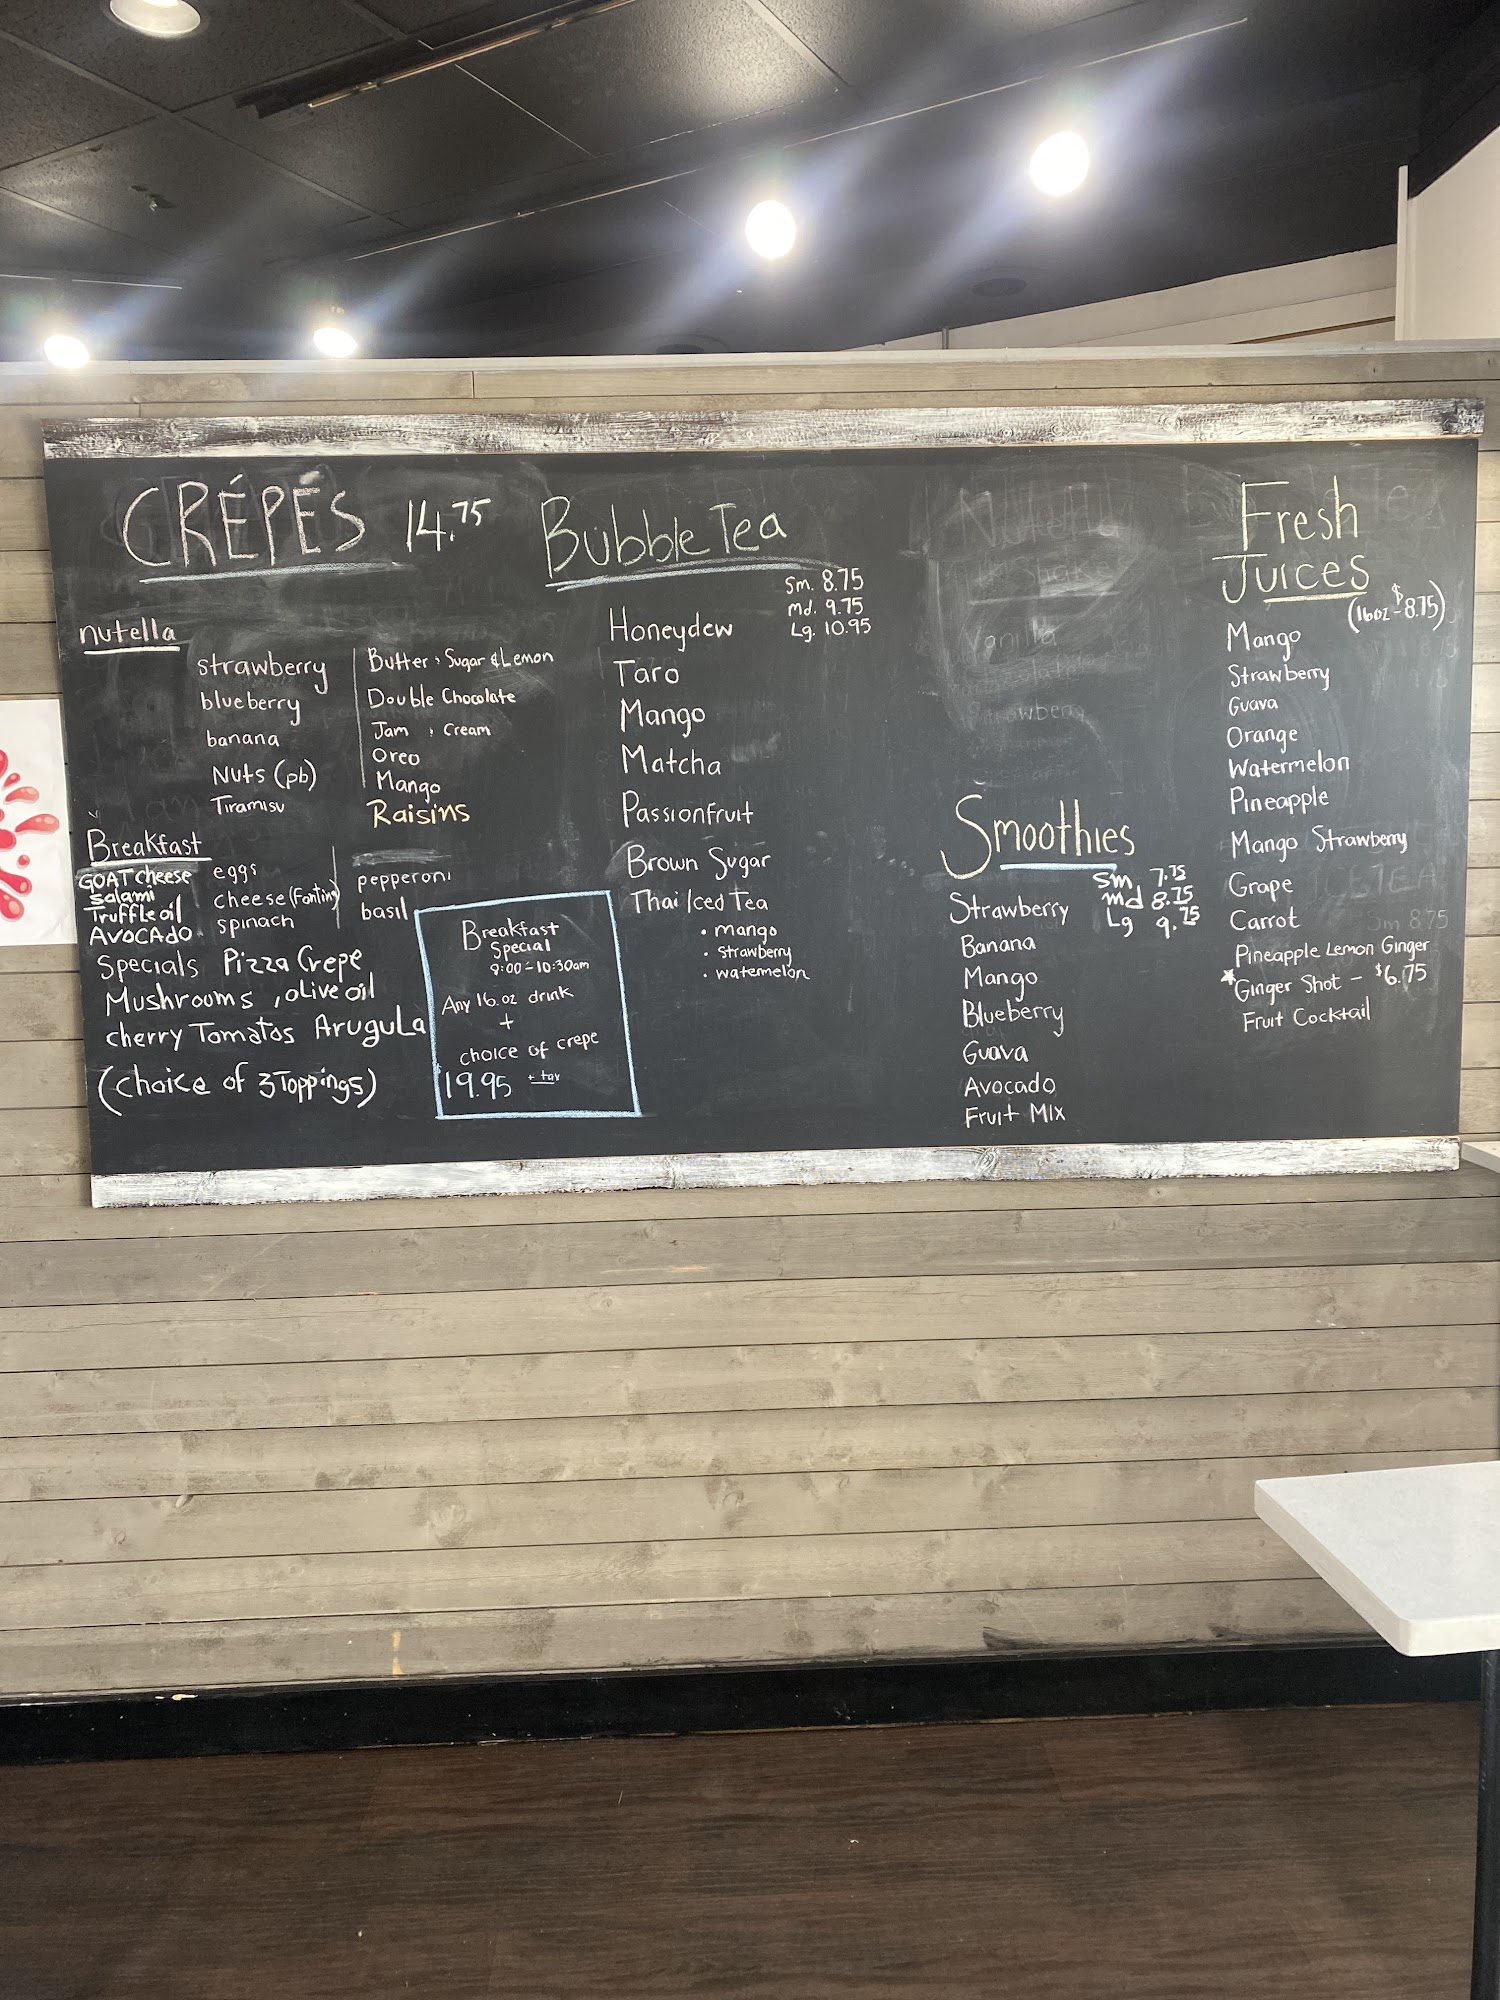 CRÉPÉS 14.75
nutella
strawberry
blueberry
banana
Nuts (pb)
Tiramisu
Butter, Sugar & Lemon
Double Chocolate
Jam , Cream
Oreo
Mango
Raisins
Breakfast
GOAT cheese
Salami
Truffle oil
AVOCADO
eggs
cheese (Fontin)
spinach
pepperoni
basil
Specials Pizza Crepe
Mushrooms , olive oil
cherry Tomatos Arugula
(choice of 3 Toppings)
Breakfast
Special
9:00-10:30am
Any 16.oz drink
+
choice of crepe
$19.95 + tax
Bubble Tea
Sm. 8.75
md. 9.75
Lg. 10.95
Honeydew
Taro
Mango
Matcha
Passionfruit
Brown Sugar
Thai Iced Tea
• mango
• strawberry
• watermelon
Vanilla
Smoothies
Sm 7.75
md 8.75
Lg 9.75
Strawberry
Banana
Mango
Blueberry
Guava
Avocado
Fruit Mix
Fresh
Juices
(16oz - $8.75)
Mango
Strawberry
Guava
Orange
Watermelon
Pineapple
Mango Strawberry
Grape
Carrot
Pineapple Lemon Ginger
*Ginger Shot - $6.75
Fruit Cocktail